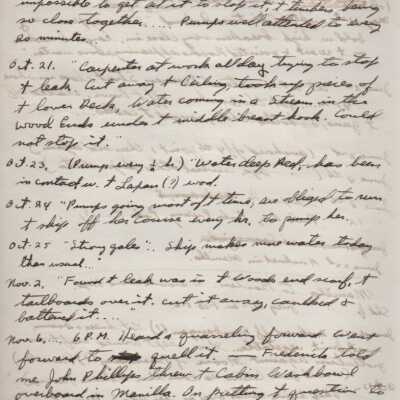 impossible to get at it to stop it, t timbers being
so close together..... Pumps well attended to every
20 minutes..
Oct. 21. "Carpenter at work all day trying to stop
t leak. Cut away t Ceiling, took up pieces of
t lower Deck. Water coming in a Stream in the
wood Ends under t middle breast hook. Could
not stop it."
Oct. 23. (Pumps every ½ h.) "Water deep Red, has been
in contact w. t Sapan (?) wood.
Oct. 24 "Pumps going most of t time, are obliged to run
t ship off her Course every hr. to pump her.
Oct. 25 "Strong gale". Ship makes more water today
than usual..."
Nov. 2. "Found t leak was in t Woods end scarf, t
tailboards over it. cut it away, caulked &
battened it....
Nov. 6,... 6 P.M. Heard a quarreling forward went
forward to quell it — Frederick told
me John Phillips threw t Cabin Washbowl
overboard in Manilla. On putting t question to